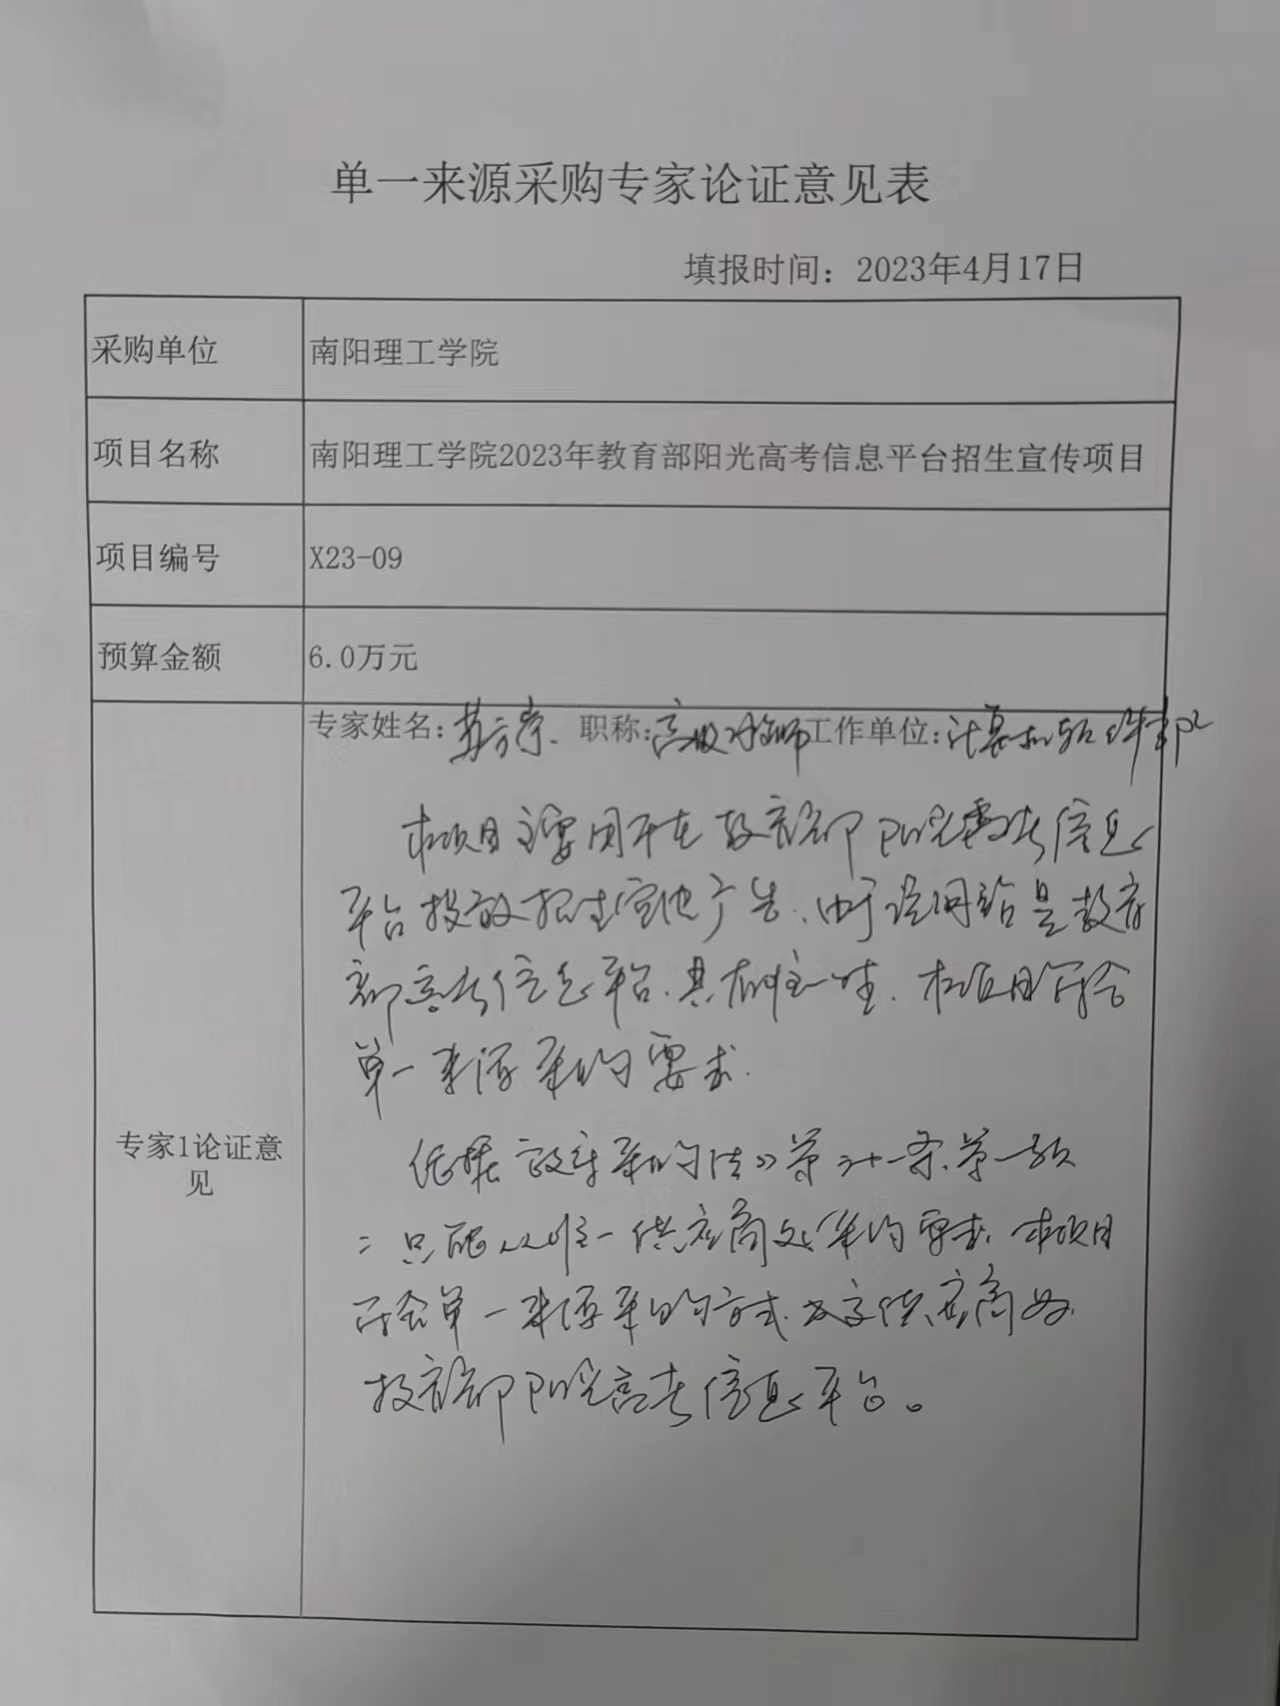 单一来源采购专家论证意见表
填报时间：2023年4月17日
采购单位 南阳理工学院
项目名称 南阳理工学院2023年教育部阳光高考信息平台招生宣传项目
项目编号 X23-09
预算金额 6.0万元
专家姓名: 职称:高级工程师 工作单位:
本项目主要用于在教育部阳光高考信息
平台投放招生宣传广告.由于该网站是教育
部高考信息平台.具有唯一性.本项目符合
单一来源采购要求.
专家1论证意
见
依据政府采购法》第三十一条.第一款
:只能从唯一供应商处采购要求.本项目
符合单一来源采购方式.供应商为
教育部阳光高考信息平台。